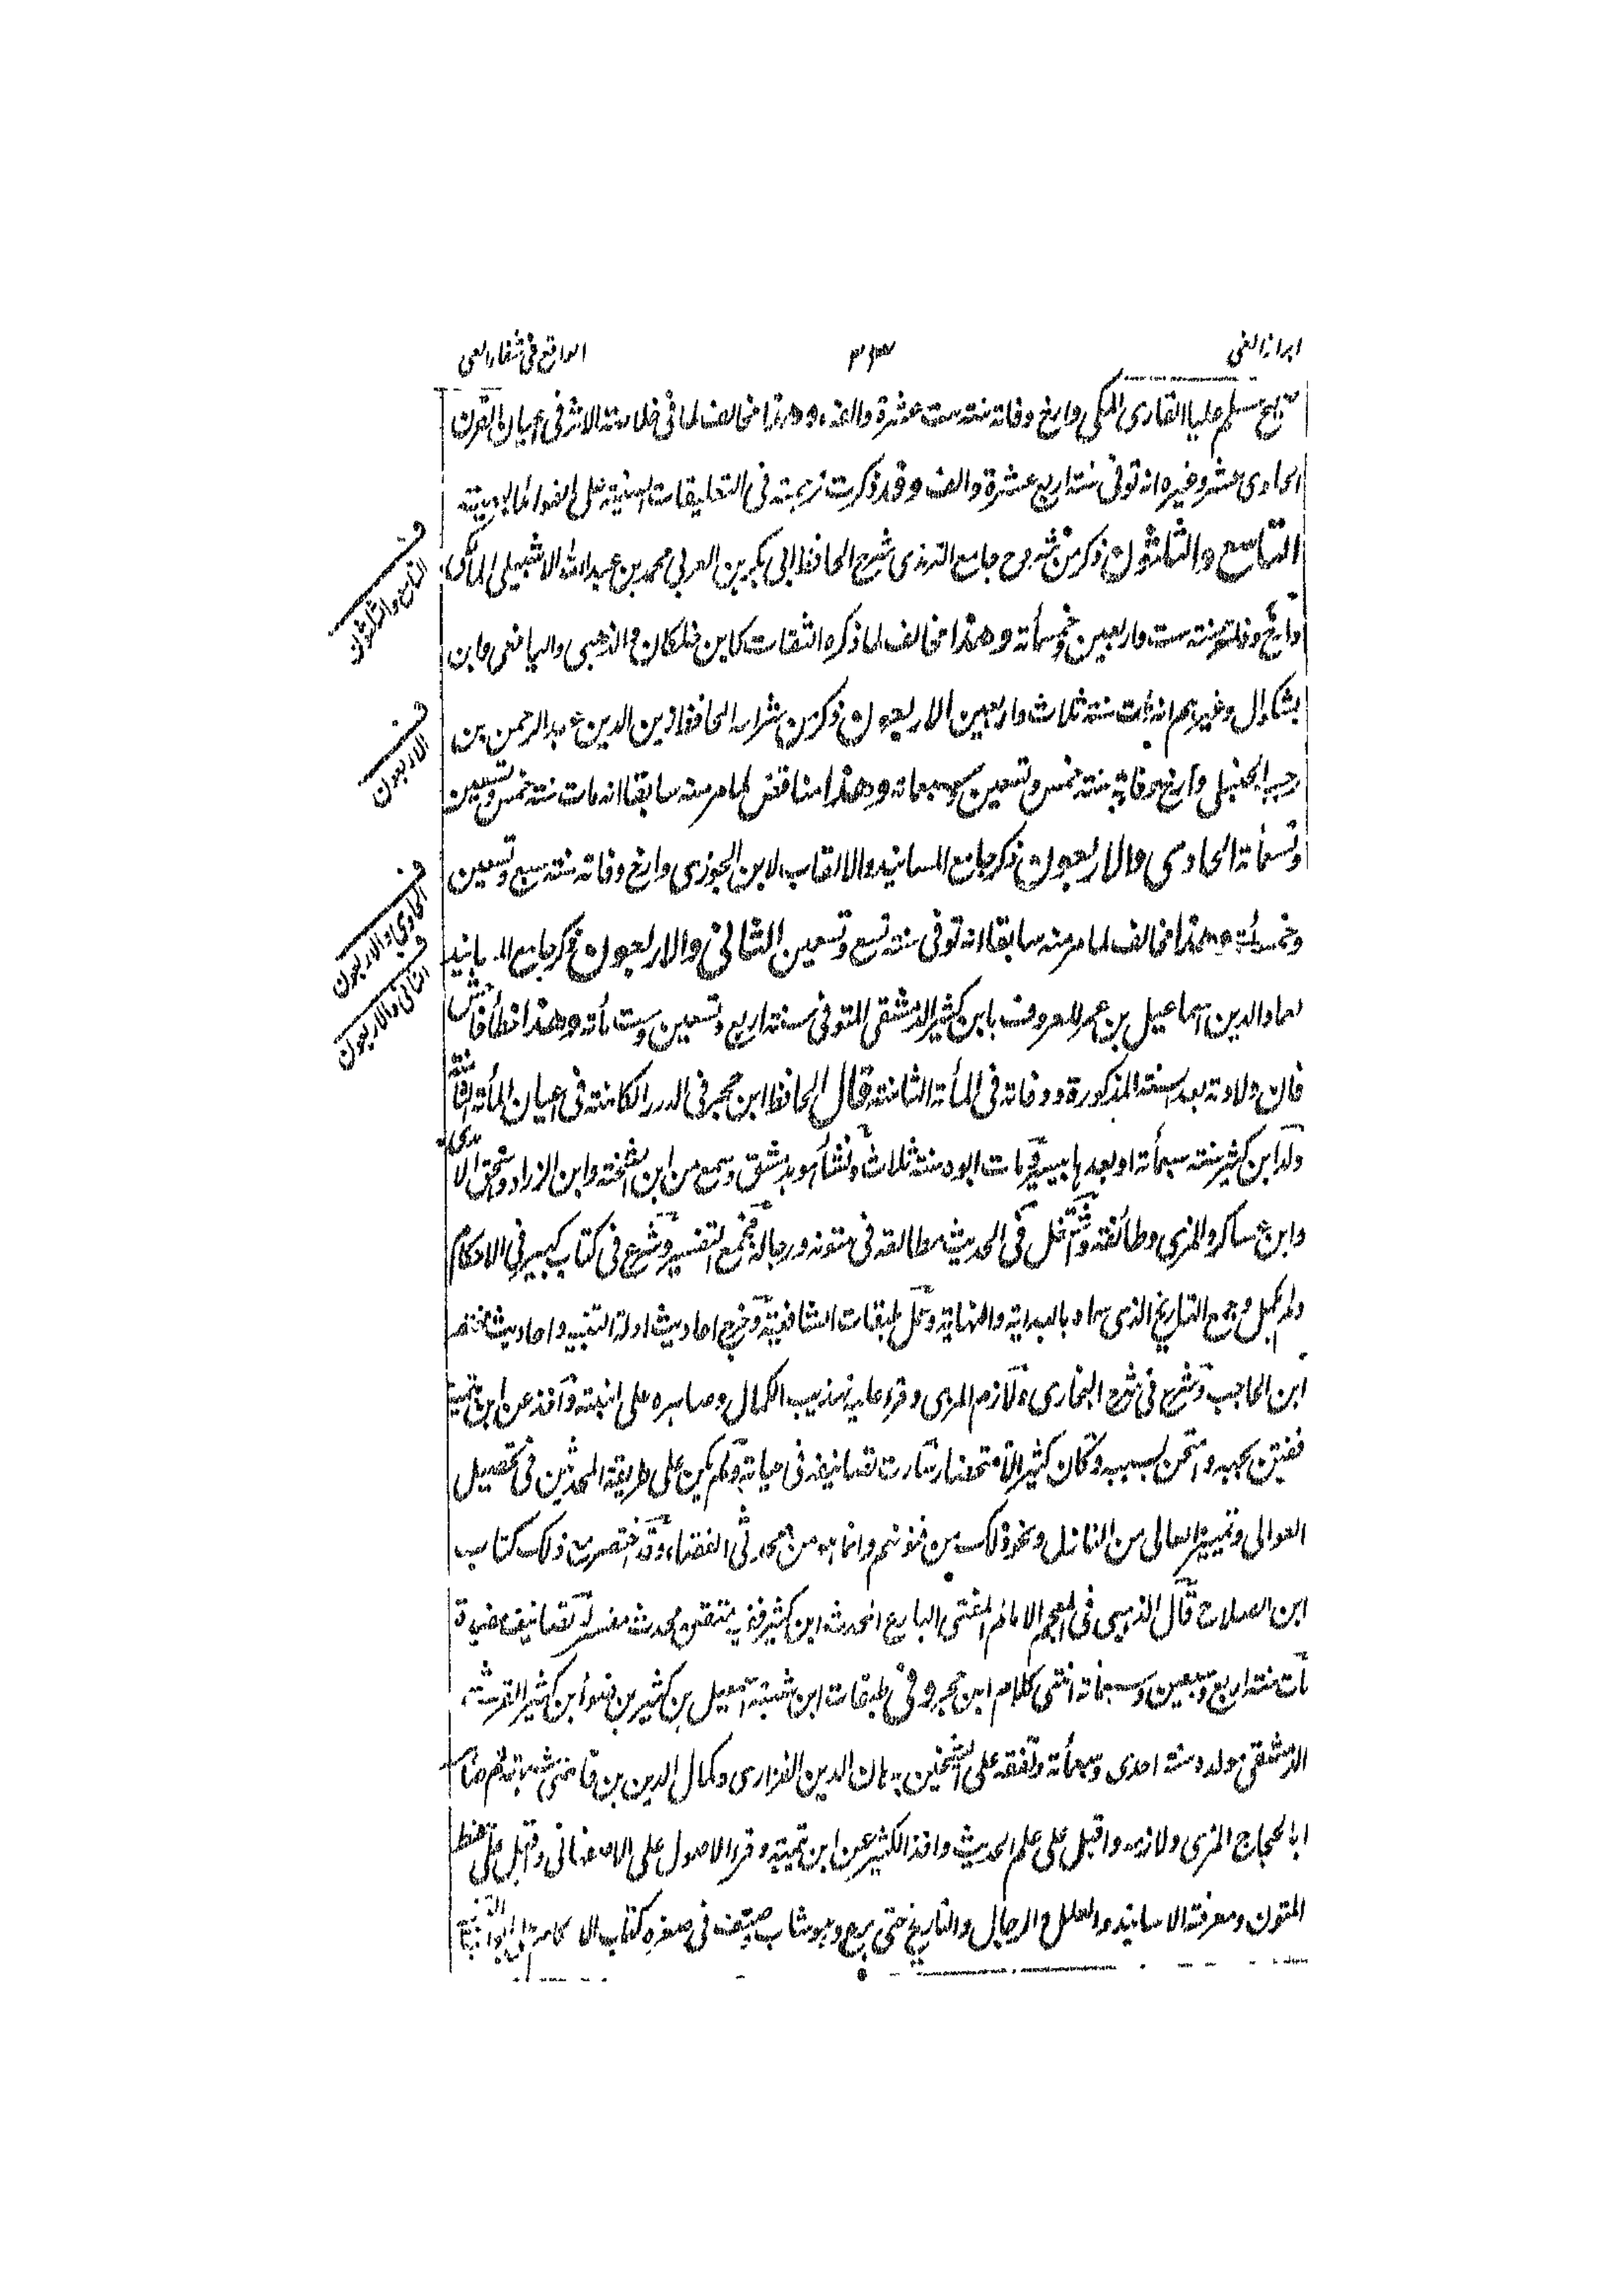 ابراز الغي ٣٣ الواقع في شفاء العي
مسلم عليا القاري المكي وارخ وفاته سنة ست عشرة والف وهذا مخالف لما في خلاصة الاثر في اعيان القرن
الحادي عشر وغيره انه توفي سنة اربع عشرة والف وقد ذكرت ترجمته في التعليقات السنية على الفوائد البهية
التاسع والثلثون ذكر من شروح جامع الترمذي شرح الحافظ ابي بكر بن العربي محمد بن عبد الله الاشبيلي المالكي
وارخ وفاته سنة ست واربعين وخمسمأته وهذا مخالف لما ذكره الثقات كابن خلكان والذهبي واليافعي وابن
بشكوال وغيرهم انه مات سنة ثلاث واربعين الاربعون ذكر من شراحه الحافظ زين الدين عبد الرحمن بن
رجب الحنبلي وارخ وفاته سنة خمس وتسعين وسبعمأته وهذا مناقض لما مر منه سابقا انه مات سنة خمس وتسعين
وتسعمأته الحادي والاربعون ذكر جامع المسانيد والالقاب لابن الجوزي وارخ وفاته سنة سبع وتسعين
وخمسمأته وهذا مخالف لما مر منه سابقا انه توفي سنة تسع وتسعين الثاني والاربعون ذكر جامع المسانيد
لعماد الدين اسماعيل بن عمر المعروف بابن كثير الدمشقي المتوفى سنة اربع وتسعين وست مأته وهذا خطأ فاحش
فان ولادته بعد السنة المذكورة ووفاته في المأته الثامنة قال الحافظ ابن حجر في الدرر الكامنة في اعيان المأته الثامنة
ولد ابن كثير سنة سبعمأته او بعدها بيسير ومات ابوه سنة ثلاث ونشأ هو بدمشق وسمع من ابن الشحنة وابن الزراد واسحق الآمدي
وابن عساكر والمزي وطائفة واشتغل في الحديث مطالعة في متونه ورجاله فجمع التفسير وشرع في كتاب كبير في الاحكام
ولم يكمل وجمع التاريخ الذي سماه بالبداية والنهاية وعمل طبقات الشافعية وخرج احاديث ادلة التنبيه واحاديث مختصر
ابن الحاجب وشرع في شرح البخاري ولازم المزي وقرا عليه تهذيب الكمال وصاهره على ابنته واخذ عن ابن تيمية
ففتن بحبه وامتحن بسببه وكان كثير الاستحضار سارت تصانيفه في حياته ولم يكن على طريقة المحدثين في تحصيل
العوالي وتمييز العالي من النازل ونحو ذلك من فنونهم وانما هو من محدثي الفقهاء وقد اختصر مع ذلك كتاب
ابن الصلاح قال الذهبي في المعجم الامام المفتي البارع المحدث ابن كثير فقيه متفنن محدث مفسر له تصانيف مفيدة
مات سنة اربع وسبعين وسبعمأته انتهى كلام ابن حجر وفي طبقات ابن شهبة اسمعيل بن كثير بن ضوء بن كثير القرشي
الدمشقي مولده سنة احدى وسبعمأته وتفقه على الشيخين برهان الدين الفزاري وكمال الدين بن قاضي شهبة ثم صاهر
ابا الحجاج المزي ولازمه واقبل على علم الحديث واخذ الكثير عن ابن تيمية وقرا الاصول على الاصفهاني واقبل على حفظ
المتون ومعرفة الاسانيد والعلل والرجال والتاريخ حتى برع وهو شاب صنف في صغره كتاب الاحكام على ابواب التنبيه
ف
التاسع والثلثون
ف
الاربعون
ف
الحادي والاربعون
ف
الثاني والاربعون